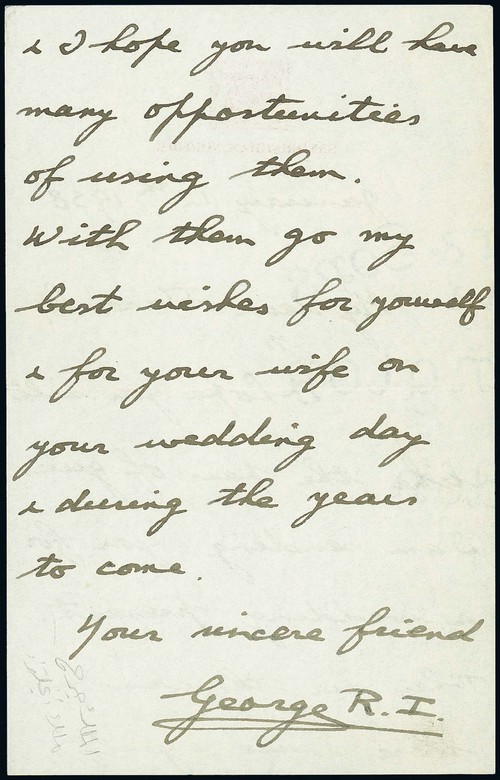 & I hope you will have
many opportunities
of using them.
With them go my
best wishes for yourself
& for your wife on
your wedding day
& during the years
to come.
Your sincere friend
George R. I.